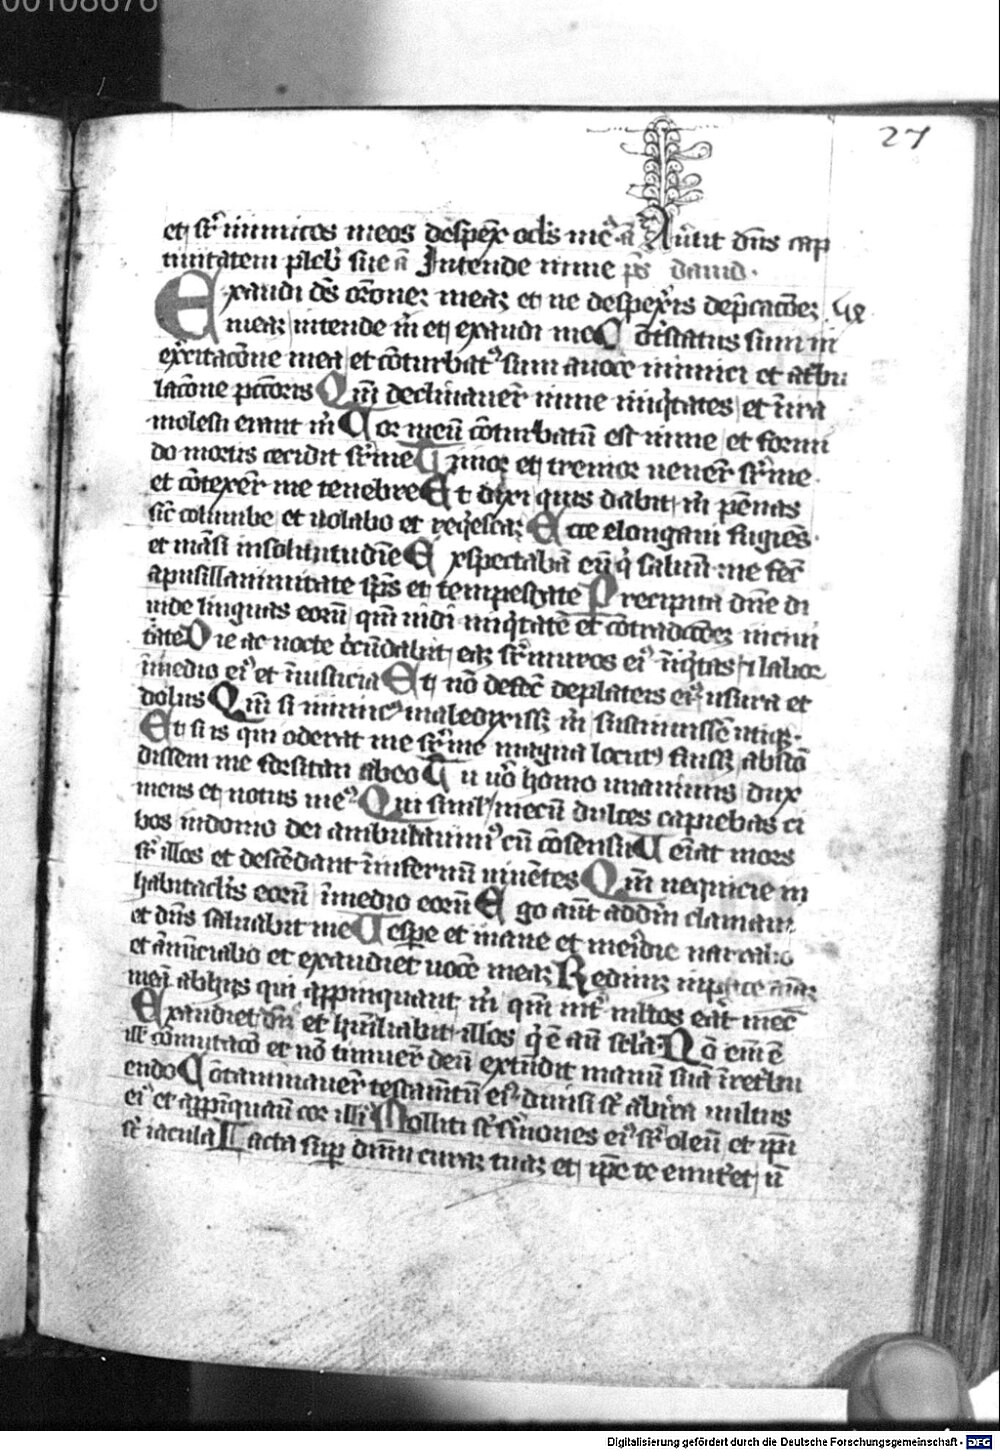 00108676
27
et sr̄ inimicos meos despex̄ ocl̓s me᷒ aͣ Au̓tit dn̄s cap
tiuitatem pleb̓ sue aͣ Intende mine ps̄ dauid.
Exaudi ds̄ orōneꝫ meaꝫ et ne despexe̓is dep̄cacōeꝫ
meaꝫ intende m̄ et exaudi me Cōtristatus sum in
exe̓citacōne mea et cōturbatꝰ sum auoce inimici et at̓bu
lacōne pccōris Qm̄ declinauer̄ inme iniq̓tates et īira
molesti erant m̄ Cor meū cōturbatū est inme et formi
do mortis cecidit sr̄ me Timor et tremor uener̄ sr̄ me
et cōtexer̄ me tenebre Et dixi quis dabit m̄ pēnas
sic̄ columbe et uolabo et req̓escaꝫ Ecce elongaui fugiēs
et māsi insolitutudīe Exspectabā eū q̓ saluū me fec̄
apusillanimitate sp̄s et tempestate Precipita dn̄e di
uide linguas eorū qm̄ uidi iniq̓tatē et cōtradiccōeꝫ inciui
tate Die ac nocte cc̓ūdabit eaꝫ sr̄ muros eiꝰ īiq̓tas et labor
īmedio eiꝰ et īiusticia Et nō defec̄ deplateis eiꝰ usura et
dolus Qm̄ si inimicꝰ maledixissꝫ m̄ sustinuissē utiqꝫ
Et si is qui oderat me sr̄ me magna locutꝰ fuissꝫ abscō
dissem me forsitan abeo Tu uō homo unanimis dux
meus et notus meꝰ Qui simul mecū dulces capiebas ci
bos indomo dei ambulauimꝰ cū cōsensu Ueīat mors
sr̄ illos et descēdant īinfernū uiuētes Qm̄ nequicie in
habitacl̓is eorū īmedio eorū Ego aut̄ addm̄ clamaui
et dn̄s saluabit me Uespe et mane et meīdie narrabo
et ānūciabo et exaudiet uocē meaꝫ Redimꝫ inpace aīaꝫ
meā abhijs qui appinquant m̄ qm̄ int̓ ml̓tos eāt mec̄
Exaudiet dn̄s et hūiliabit illos q̓ ē an̄ sc̄la Nō em̄ ē
ill̓ cōmutacō et nō timuer̄ deū extēdit manū suā īretbu
endo Cōtaminauer̄ testam̄tū eiꝰ diuisi st̄ abīra uultus
eiꝰ et appīquauit cor illiꝰ Molliti st̄ sm̄ones eiꝰ sr̄ oleū et ipi
st̄ iacula Iacta sup dn̄m curaꝫ tuaꝫ et ip̄e te enutiet ū
Digitalisierung gefördert durch die Deutsche Forschungsgemeinschaft - DFG